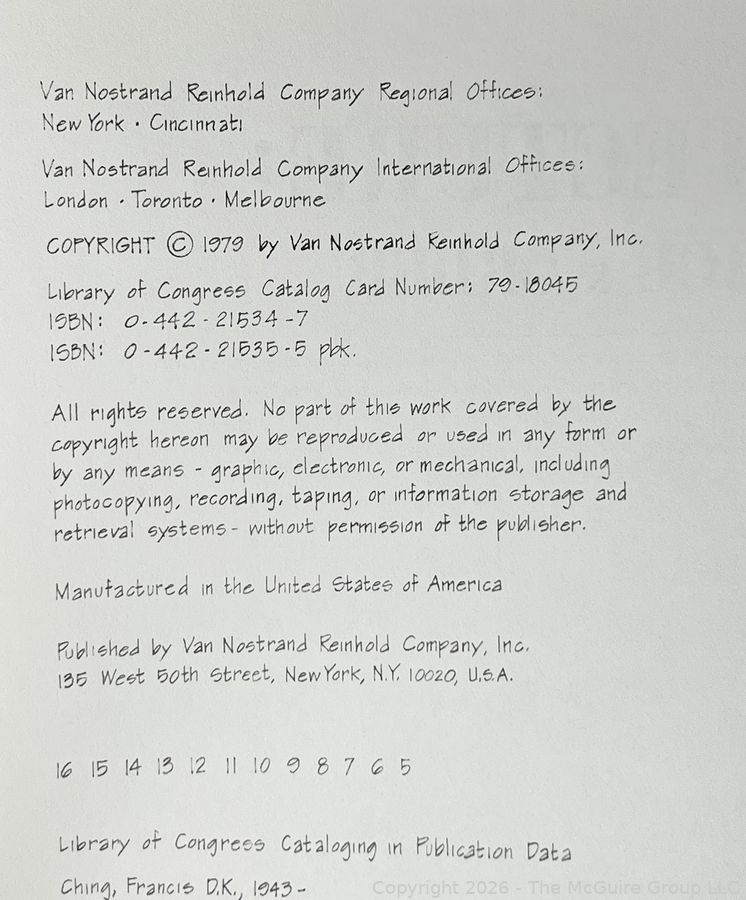 Van Nostrand Reinhold Company Regional Offices:
New York · Cincinnati
Van Nostrand Reinhold Company International Offices:
London · Toronto · Melbourne
COPYRIGHT © 1979 by Van Nostrand Reinhold Company, Inc.
Library of Congress Catalog Card Number: 79-18045
ISBN: 0-442-21534-7
ISBN: 0-442-21535-5 pbk.
All rights reserved. No part of this work covered by the
copyright hereon may be reproduced or used in any form or
by any means - graphic, electronic, or mechanical, including
photocopying, recording, taping, or information storage and
retrieval systems - without permission of the publisher.
Manufactured in the United States of America
Published by Van Nostrand Reinhold Company, Inc.
135 West 50th Street, New York, N.Y. 10020, U.S.A.
16 15 14 13 12 11 10 9 8 7 6 5
Library of Congress Cataloging in Publication Data
Ching, Francis D.K., 1943-
Copyright 2026 - The McGuire Group LLC